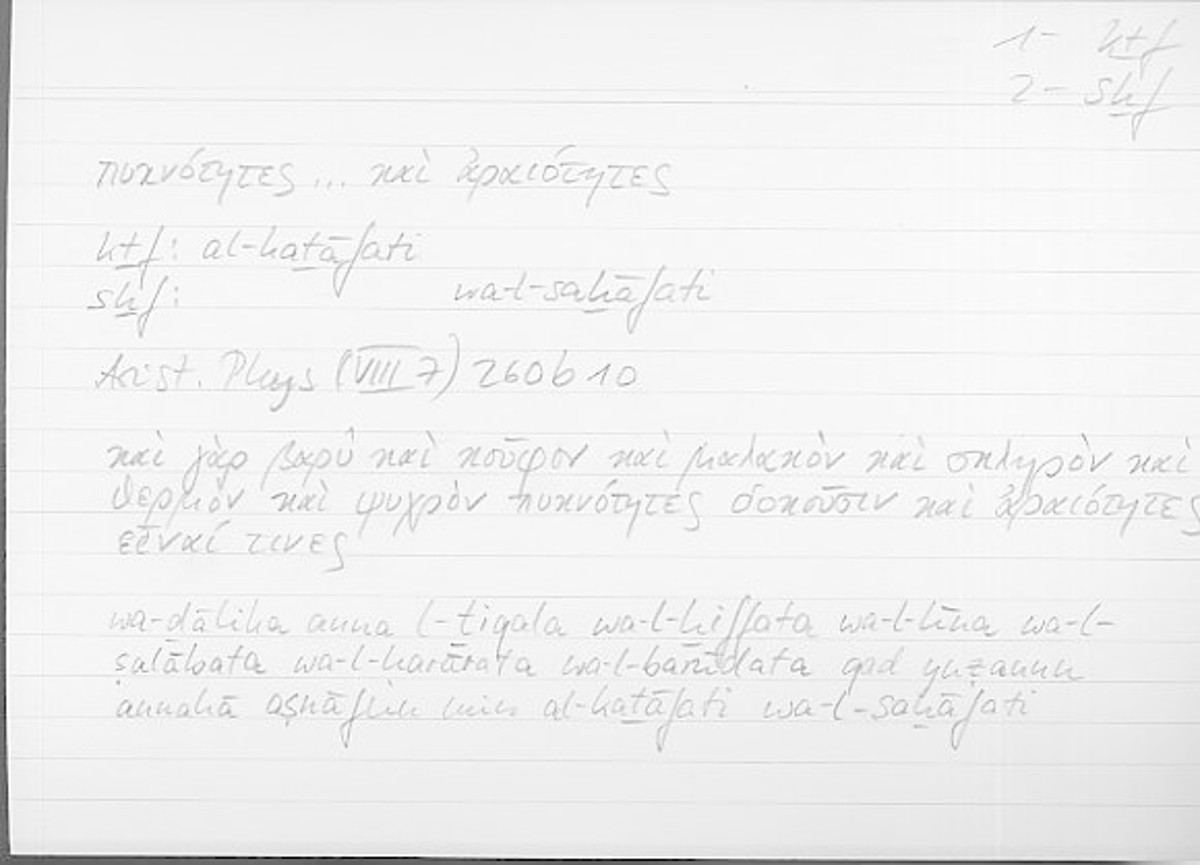 1- kṯf
2- sḫf
πυκνότητες ... καὶ ἀραιότητες
kṯf: al-kaṯāfati
sḫf: wa-l-saḫāfati
Arist. Phys (VIII 7) 260b10
καὶ γὰρ βαρὺ καὶ κοῦφον καὶ μαλακὸν καὶ σκληρὸν καὶ
θερμὸν καὶ ψυχρὸν πυκνότητες δοκοῦσιν καὶ ἀραιότητες
εἶναί τινες
wa-ḏālika anna l-ṯiqala wa-l-ḫiffata wa-l-līna wa-l-
ṣalābata wa-l-ḥarārata wa-l-barūdata qad yuẓannu
annahā aṣnāfun min al-kaṯāfati wa-l-saḫāfati